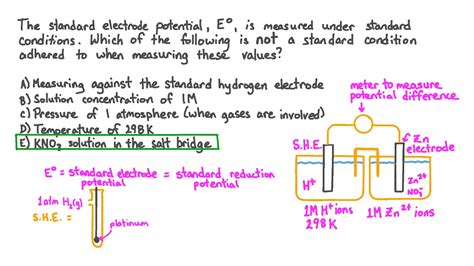 The standard electrode potential, E°, is measured under standard
conditions. Which of the following is not a standard condition
adhered to when measuring these values?
A) Measuring against the standard hydrogen electrode
B) Solution concentration of 1M
C) Pressure of 1 atmosphere (when gases are involved)
D) Temperature of 298K
E) KNO₃ solution in the salt bridge
E° = standard electrode = standard reduction
potential potential
1 atm H₂(g)
S.H.E. =
platinum
meter to measure
potential difference
S.H.E.
Zn
electrode
H⁺
Zn²⁺
NO₃⁻
1M H⁺ ions
298 K
1M Zn²⁺ ions